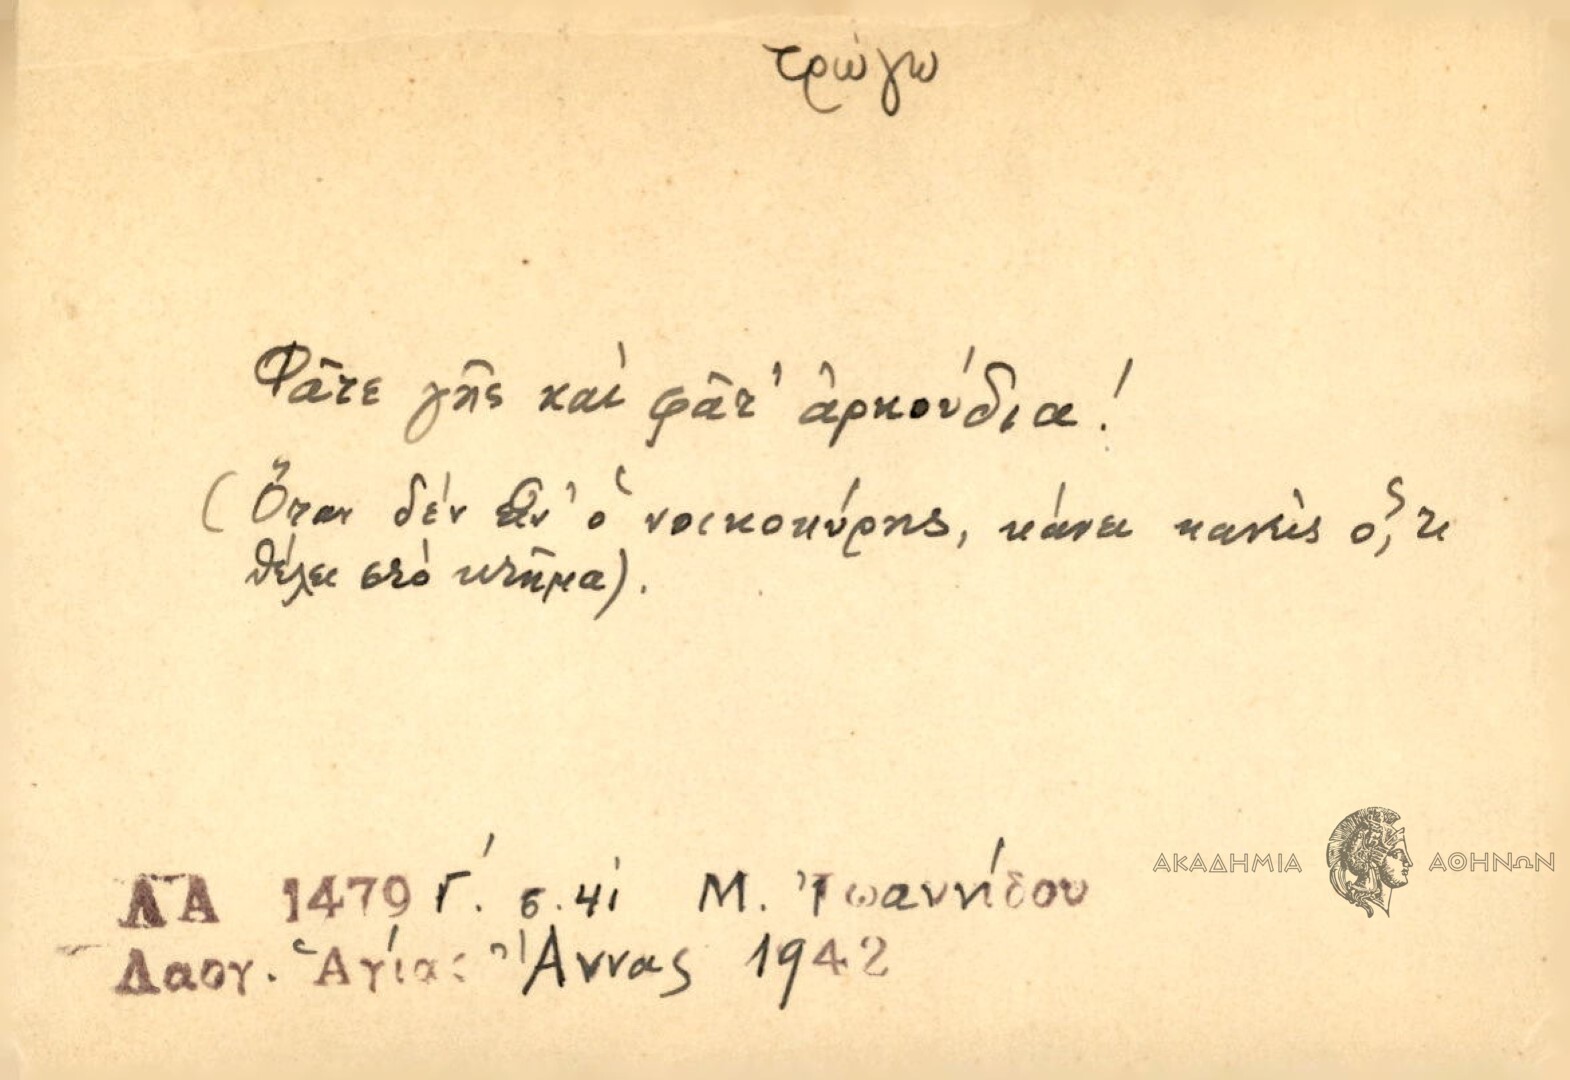 τρώγω
Φᾶτε γῆς καὶ φᾶτ' ἀρκούδια!
(Ὅταν δέν εἶν' ὁ νοικοκύρης, κάνει κανεὶς ὅ,τι
θέλει στὸ κτῆμα).
ΛΑ 1479 Γ΄. σ. 41 Μ. Ἰωαννίδου
Λαογ. Ἁγίας Ἄννας 1942
ΑΚΑΔΗΜΙΑ ΑΘΗΝΩΝ